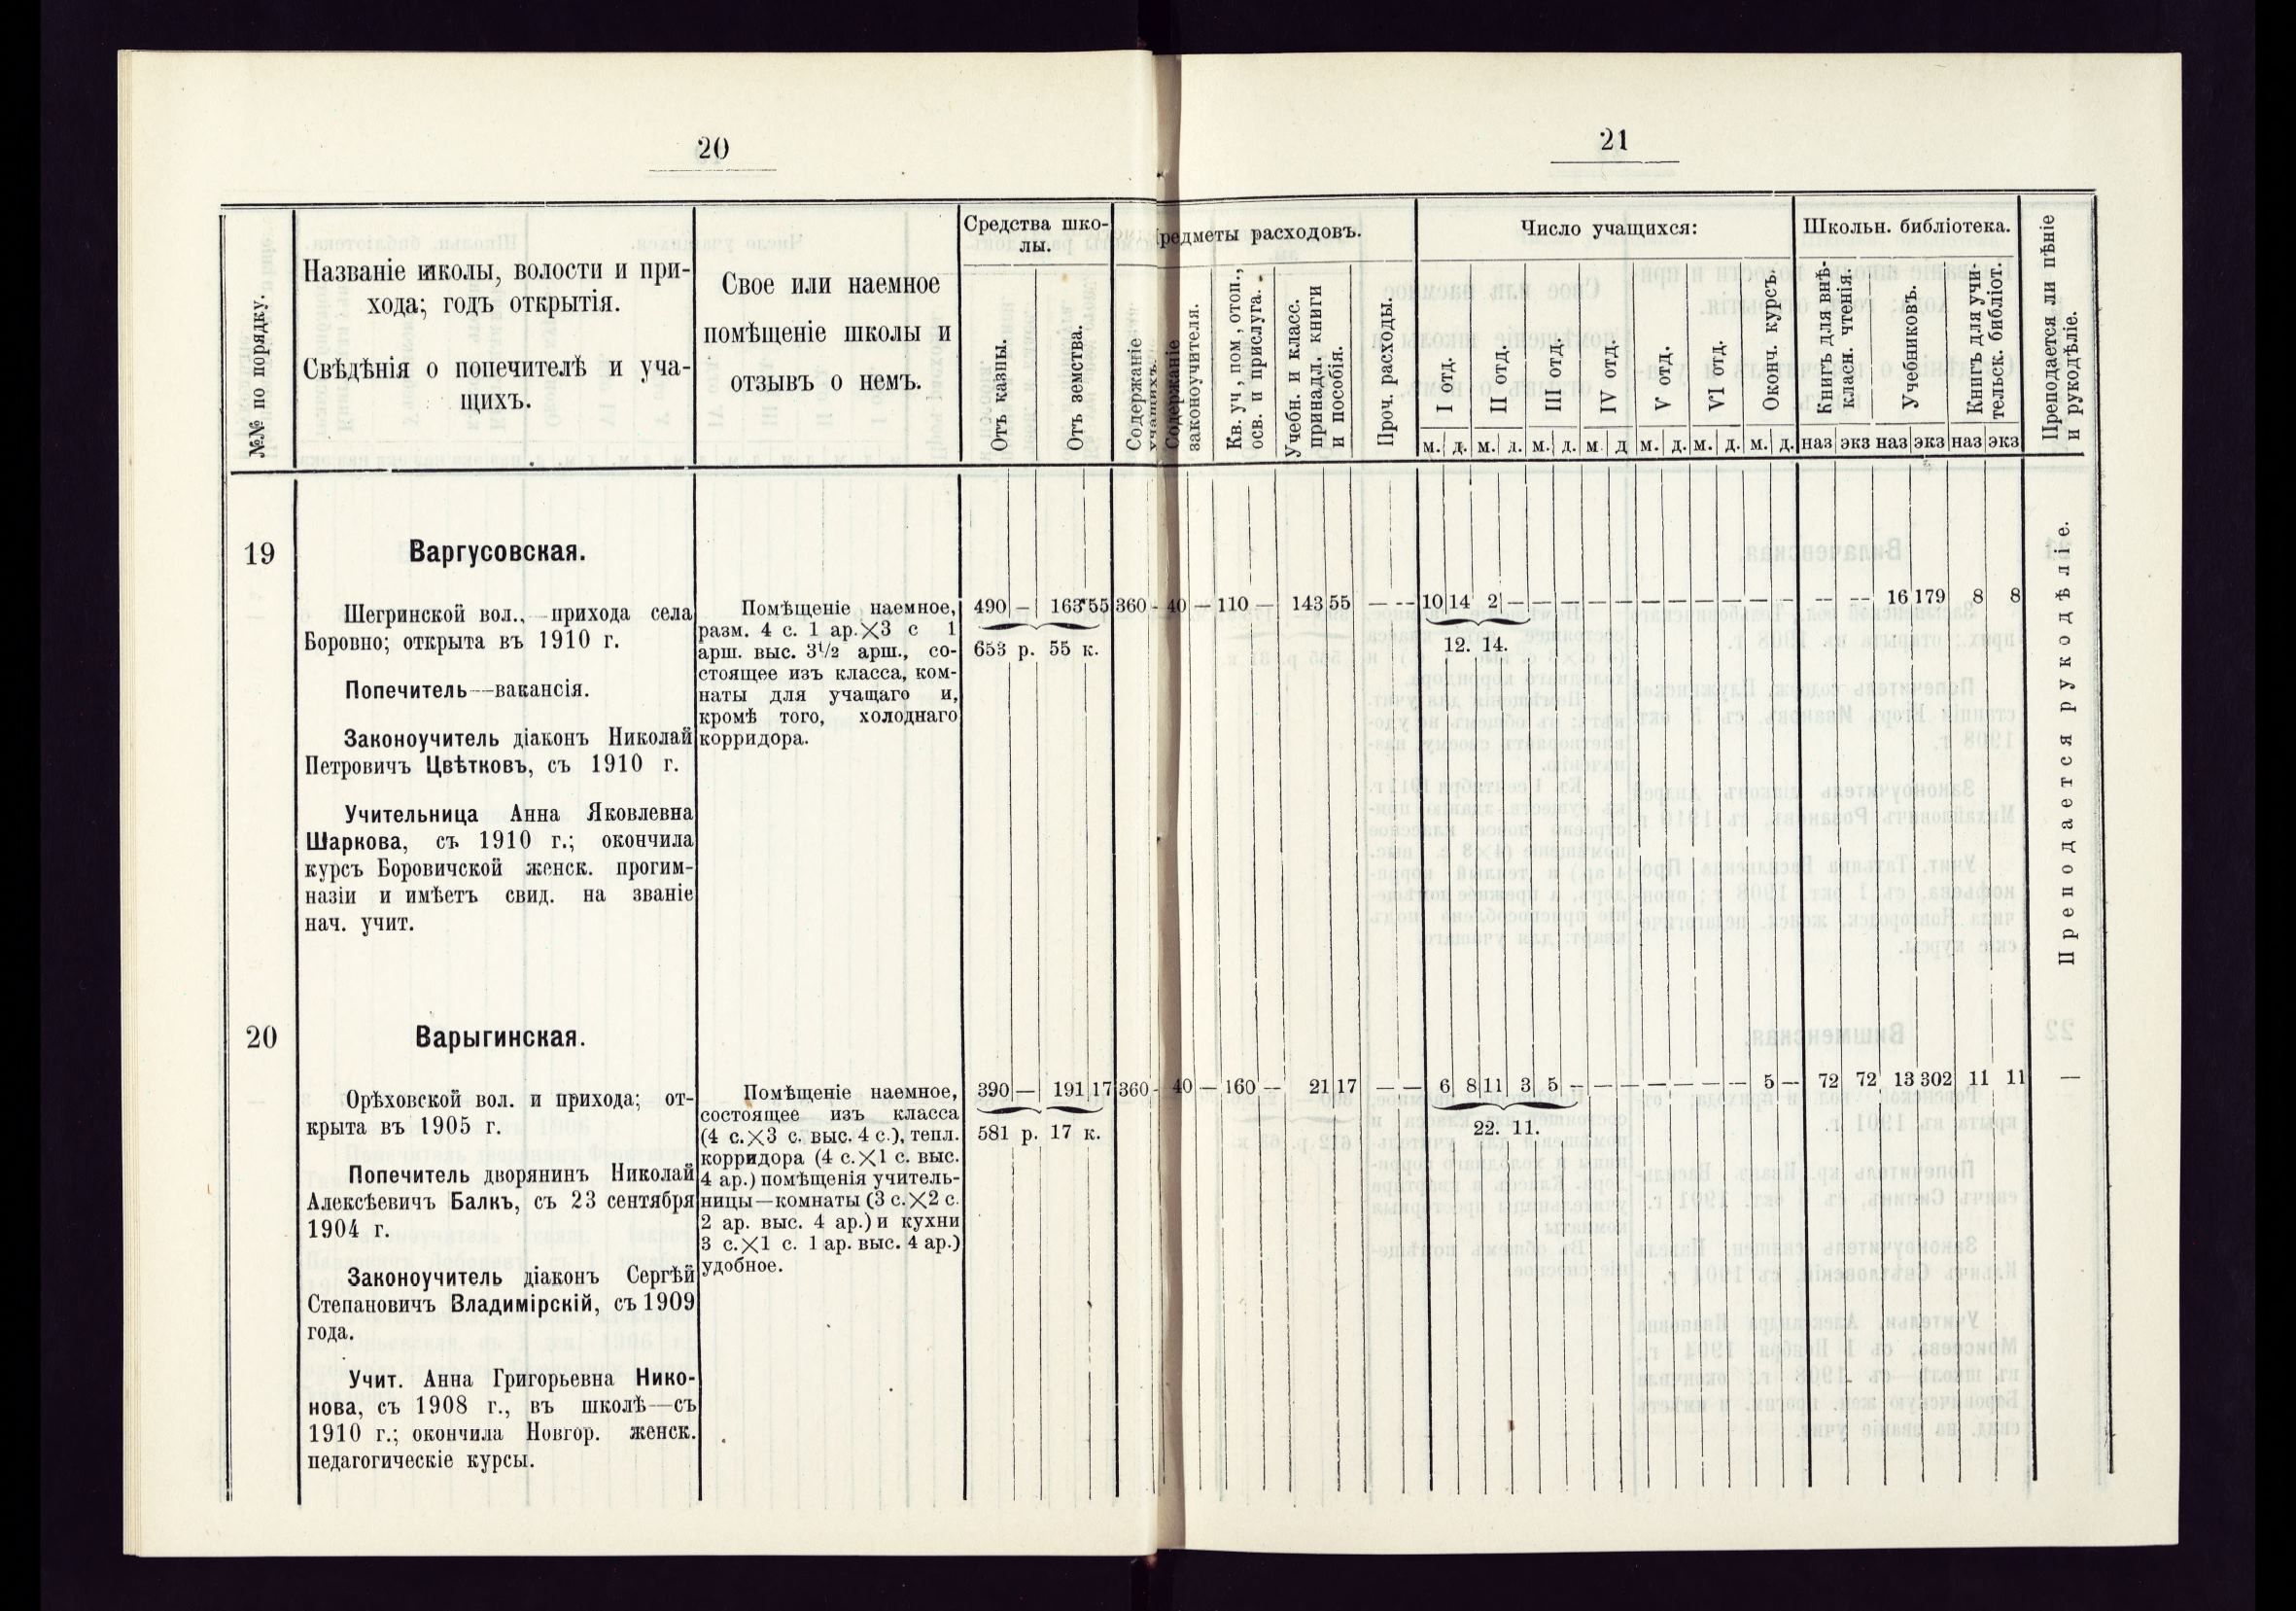 20
№№ по порядку.
Названіе школы, волости и при-
хода; годъ открытія.
Свѣдѣнія о попечителѣ и уча-
щихъ.
Свое или наемное
помѣщеніе школы и
отзывъ о немъ.
Средства шко-
лы.
Отъ казны.
Отъ земства.
Содержаніе
учащихъ.
19
Варгусовская.
Шегринской вол., прихода села
Боровно; открыта въ 1910 г.
Попечитель—вакансія.
Законоучитель діаконъ Николай
Петровичъ Цвѣтковъ, съ 1910 г.
Учительница Анна Яковлевна
Шаркова, съ 1910 г.; окончила
курсъ Боровичской женск. прогим-
назіи и имѣетъ свид. на званіе
нач. учит.
Помѣщеніе наемное,
разм. 4 с. 1 ар.×3 с 1
арш. выс. 3½ арш., со-
стоящее изъ класса, ком-
наты для учащаго и,
кромѣ того, холоднаго
корридора.
490 — 163 55 360 -
653 р. 55 к.
20
Варыгинская.
Орѣховской вол. и прихода; от-
крыта въ 1905 г.
Попечитель дворянинъ Николай
Алексѣевичъ Балкъ, съ 23 сентября
1904 г.
Законоучитель діаконъ Сергѣй
Степановичъ Владимірскій, съ 1909
года.
Учит. Анна Григорьевна Нико-
нова, съ 1908 г., въ школѣ—съ
1910 г.; окончила Новгор. женск.
педагогическіе курсы.
Помѣщеніе наемное,
состоящее изъ класса
(4 с.×3 с. выс. 4 с.), тепл.
корридора (4 с.×1 с. выс.
4 ар.) помѣщенія учитель-
ницы—комнаты (3 с.×2 с.
2 ар. выс. 4 ар.) и кухни
3 с.×1 с. 1 ар. выс. 4 ар.)
удобное.
390 — 191 17 360 -
581 р. 17 к.
21
редметы расходовъ.
Содержаніе
законоучителя.
Кв. уч, пом, отоп.,
осв. и прислуга.
Учебн. и класс.
принадл., книги
и пособія.
Проч. расходы.
Число учащихся:
I отд.
II отд.
III отд.
IV отд.
V отд.
VI отд.
Оконч. курсъ.
м. д. м. д. м. д. м д м. д. м. д. м. д.
Школьн. библіотека.
Книгъ для внѣ-
класн. чтенія.
Учебниковъ.
Книгъ для учи-
тельск. библіот.
наз экз наз экз наз экз
Преподается ли пѣніе
и рукодѣліе.
40 — 110 — 143 55 — — 10 14 2 — — — — — — — — — — — — — 16 179 8 8
12. 14.
Преподается рукодѣліе.
40 — 160 — 21 17 — — 6 8 11 3 5 — — — — — — — 5 — 72 72 13 302 11 11 —
22. 11.